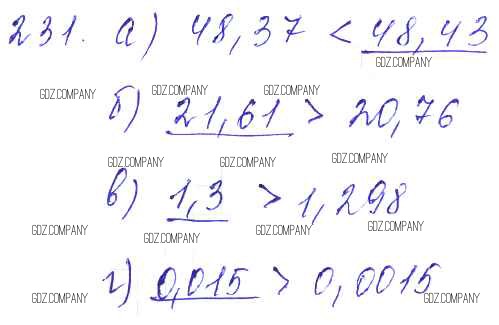 231. а) 48,37 < 48,43
GDZ.COMPANY
GDZ.COMPANY GDZ.COMPANY GDZ.COMPANY
б) 21,61 > 20,76
GDZ.COMPANY GDZ.COMPANY GDZ.COMPANY
в) 1,3 > 1,298
GDZ.COMPANY GDZ.COMPANY GDZ.COMPANY GDZ.COMPANY
г) 0,015 > 0,0015
GDZ.COMPANY GDZ.COMPANY